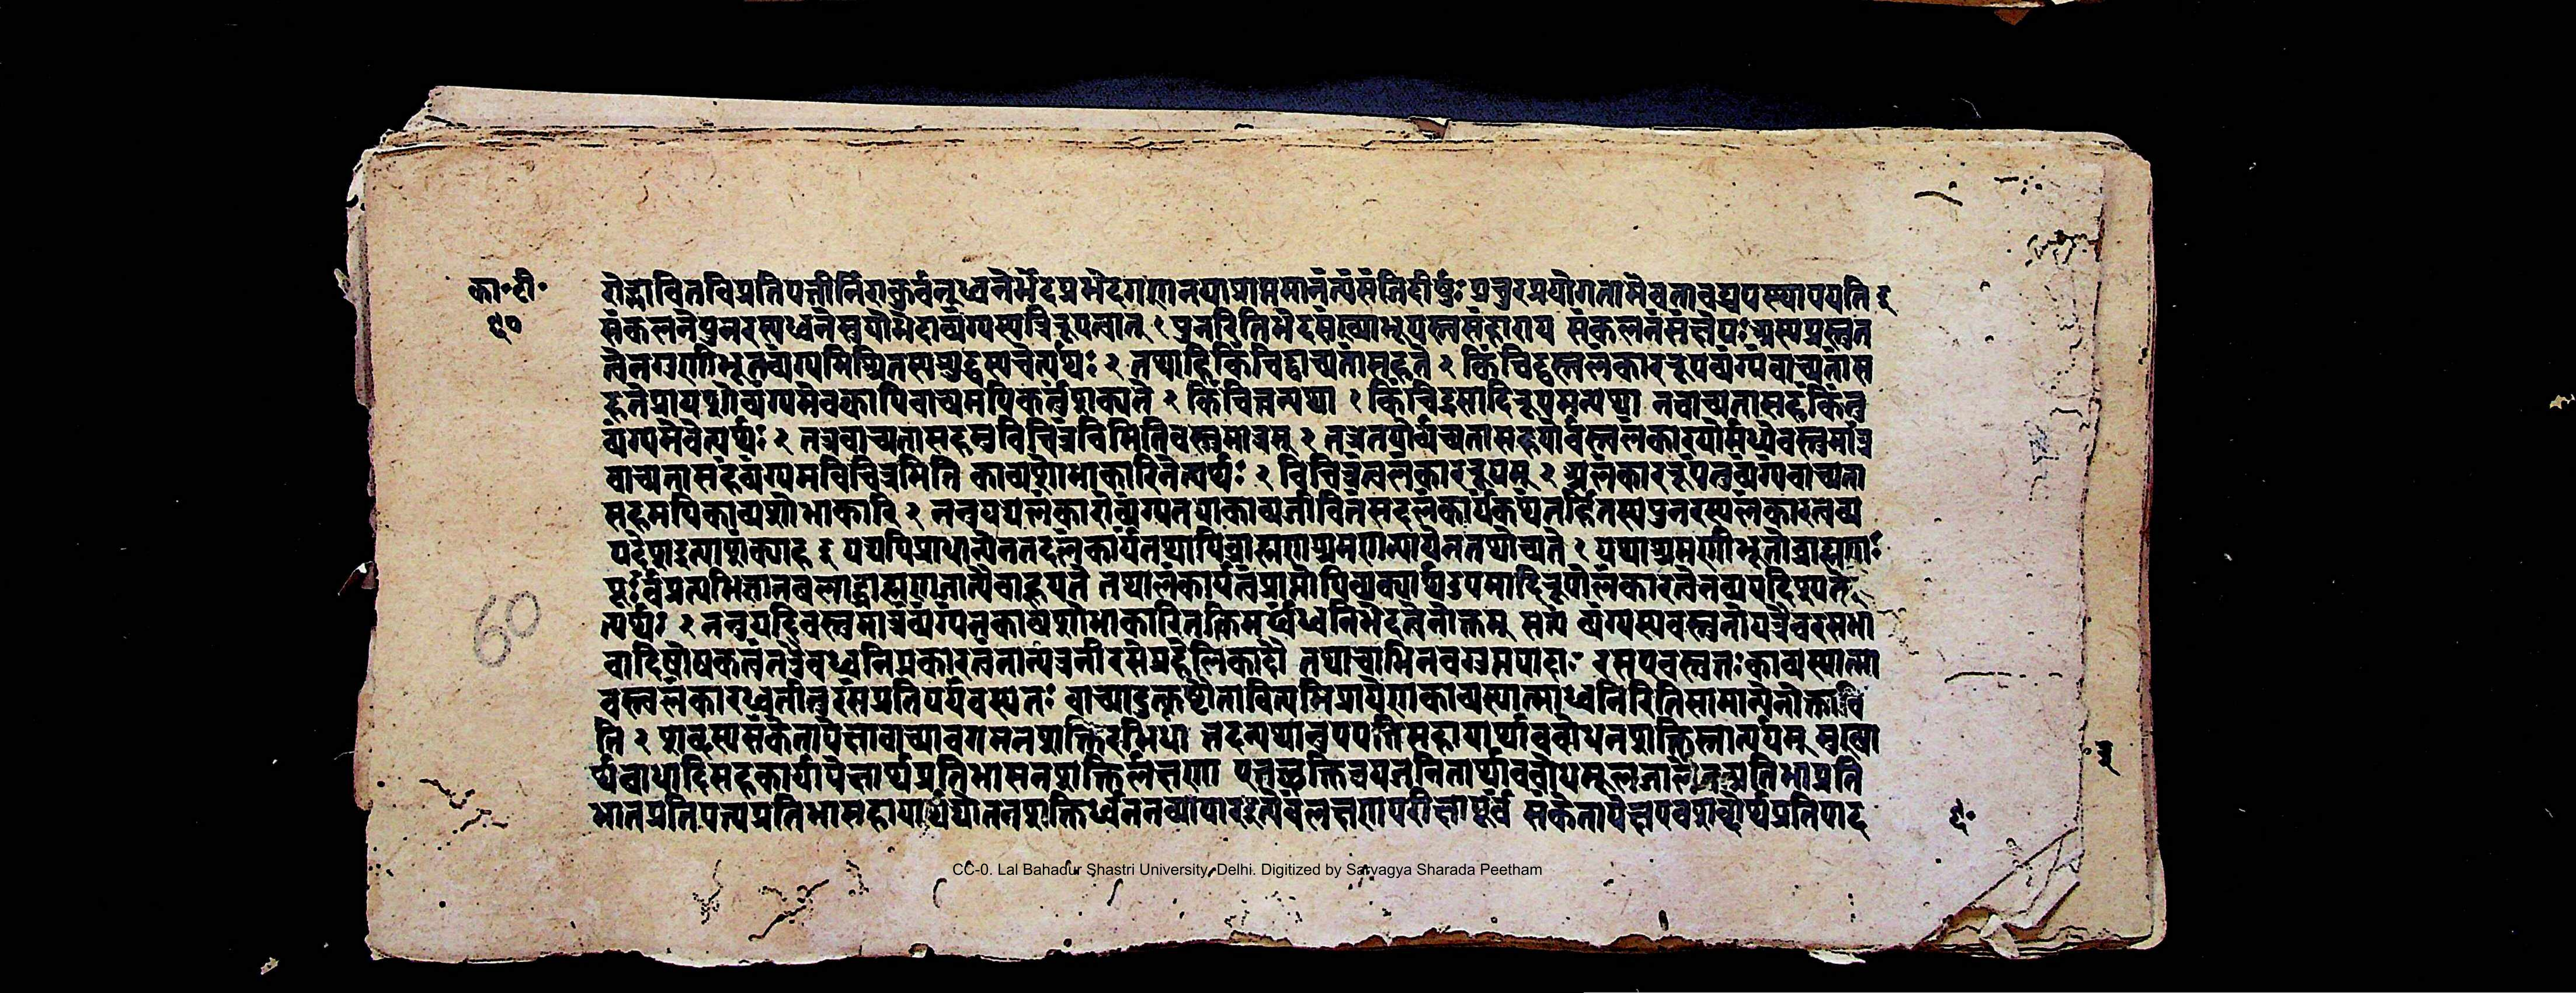 का॰टी॰
६०
रोद्भावितविप्रतिपत्तीर्निराकुर्वन्ध्वनेर्भेदप्रभेदगणनयाप्राप्तमानंत्यंसंतिदीर्षुः प्रचुरप्रयोगतामेवतावद्यपस्थापयति ह
संकलनेपुनरस्यध्वनेस्त्रयोभेदाव्यंग्यस्यत्रिरूपत्वात् १ पुनरितिभेदसंख्याभूयस्त्वसंहाराय संकलनंसंक्षेपः अस्यप्रस्तुत
त्वेनगुणीभूतव्यंग्यमिश्रितस्यशुद्धस्यचेत्यर्थः २ तथाहिकिंचिद्वाच्यतांसहते २ किंचिद्वस्त्वलंकाररूपव्यंग्यंवाच्यतांस
हतेप्रायशोव्यंग्यमेवक्वापिवाच्यमपिकर्तुंशक्यते २ किंचित्त्वन्यथा १ किंचिद्रसादिरूपमन्यथा नवाच्यतासहंकिंतु
व्यंग्यमेवेत्यर्थः २ तत्रवाच्यतासहमविचित्रंविचित्रमितिवस्तुमात्रम् २ तत्रतयोर्वाच्यतासहयोर्वस्त्वलंकारयोर्मध्येवस्तुमात्रं
वाच्यतासहंव्यंग्यमविचित्रमिति काव्यशोभाकारिनेत्यर्थः २ विचित्रंत्वलंकाररूपम् २ अलंकाररूपंतुव्यंग्यंवाच्यता
सहमपिकाव्यशोभाकारि २ ननुयद्यलंकारोव्यंग्यतयाकाव्यजीवितंसदलंकार्यंकथंतर्हितस्यपुनरस्यलंकारत्वव्य
पदेशइत्याशंक्याह इ यद्यपिप्राधान्येनतदलंकार्यंतथापिब्राह्मणश्रमणन्यायेनतथोच्यते १ यथाश्रमणीभूतोब्राह्मणः
पूर्वंप्रत्यभिज्ञानबलाद्ब्राह्मणजात्यैवाहूयते तथालंकार्यत्वंप्राप्तोपिव्यंग्यार्थउपमादिरूपोलंकारत्वेनव्यपदिश्यते
त्यर्थः २ ननुयदिवस्तुमात्रंव्यंग्यंनकाव्यशोभाकारितत्किमर्थंध्वनिभेदत्वेनोक्तम् सत्यं व्यंग्यस्यवस्तुनोयत्रैवरसभा
वादिपोषकत्वंतत्रैवध्वनिप्रकारत्वंनान्यत्रनीरसेप्रहेलिकादौ तथाचाभिनवगुप्तपादाः रसएववस्तुतःकाव्यस्यात्मा
वस्त्वलंकारध्वनीतुरसंप्रतिपर्यवस्यतः वाच्यादुत्कृष्टौतावित्यभिप्रायेणकाव्यस्यात्माध्वनिरितिसामान्येनोक्तावि
ति २ शब्दस्यसंकेतापेक्षावाच्यावगमनशक्तिरभिधा तदन्यथानुपपत्तिसहायार्थावबोधनशक्तिस्तात्पर्यम् मुख्या
र्थबाधादिसहकार्यपेक्षार्थप्रतिभासनशक्तिर्लक्षणा एतच्छक्तित्रयजनितार्थावबोधमूलजातितत्प्रतिभाप्रति
भानप्रतिपत्त्यप्रतिभासहायार्थद्योतनशक्तिर्ध्वननव्यापारः इत्येवंलक्षणापरीक्षापूर्वं संकेतापेक्षएवशब्दोर्थप्रतिपाद
६॰
60
CC-0. Lal Bahadur Shastri University, Delhi. Digitized by Sarvagya Sharada Peetham